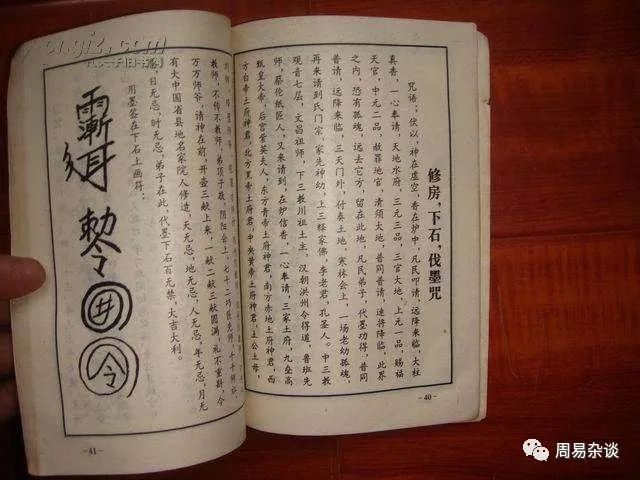 修房,下石,伐墨咒
咒语:伏以,神在虚空,香在炉中,凡民叩请,远降来临,大柱
真香,一心奉请,天地水府,三元三品,三官大地,上元一品,赐福
天官,中元二品,敖罪地官,清须大地,普同普请,速将降临,此界
之内,恐有孤魂,远去它方,留在此地,凡民弟子,代墨功得,普同
普请,远降来临,三天门外,付奏土地,寒林会上,一场老幼孤魂,
再来请到氏门宗,家先神幼,上三释家佛,李老君,孔圣人。中三教
观音七层,文昌祖师,下三教川祖土主,汉朝洪州令得道,鲁班先
师,蔡伦纸匠人,又来请到,在炉信香,一心奉请,三家土府,九垒高
皇大帝,后宫黄英夫人,东方青帝土府神君,南方赤地土府神君,西
方白帝土府神君,北方黑帝土府神君,中央黄帝土府神君,土公土母,
-40-
教师,不传不教师,弟须子教,阴阳会上
万万师爷,请神在前,开壶三献上来,一献二献三献圆满,礼不重斟,今
有大中国省县地名家院人修造,天无忌,地无忌,人无忌,年无忌,月无
忌,日无忌,时无忌,弟子在此,代墨下石百无禁,大吉大利。
用墨签在下石上画符:
敕令
井
令
-41-
周易杂谈